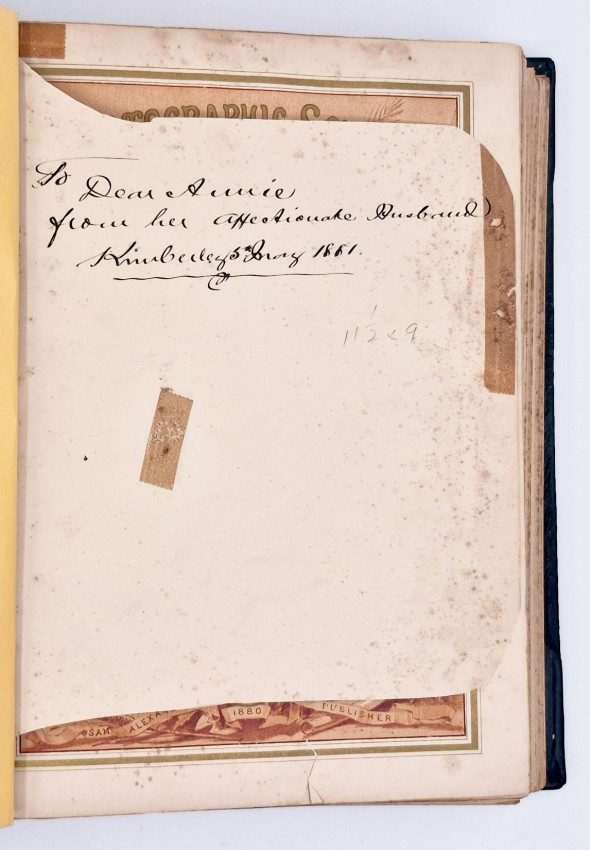 TOGRAPHIC
To
Dear Annie
from her affectionate Husband
Kimberley 5th May 1881.
11 1/2 x 9
SAM ALEXA
1880
PUBLISHER